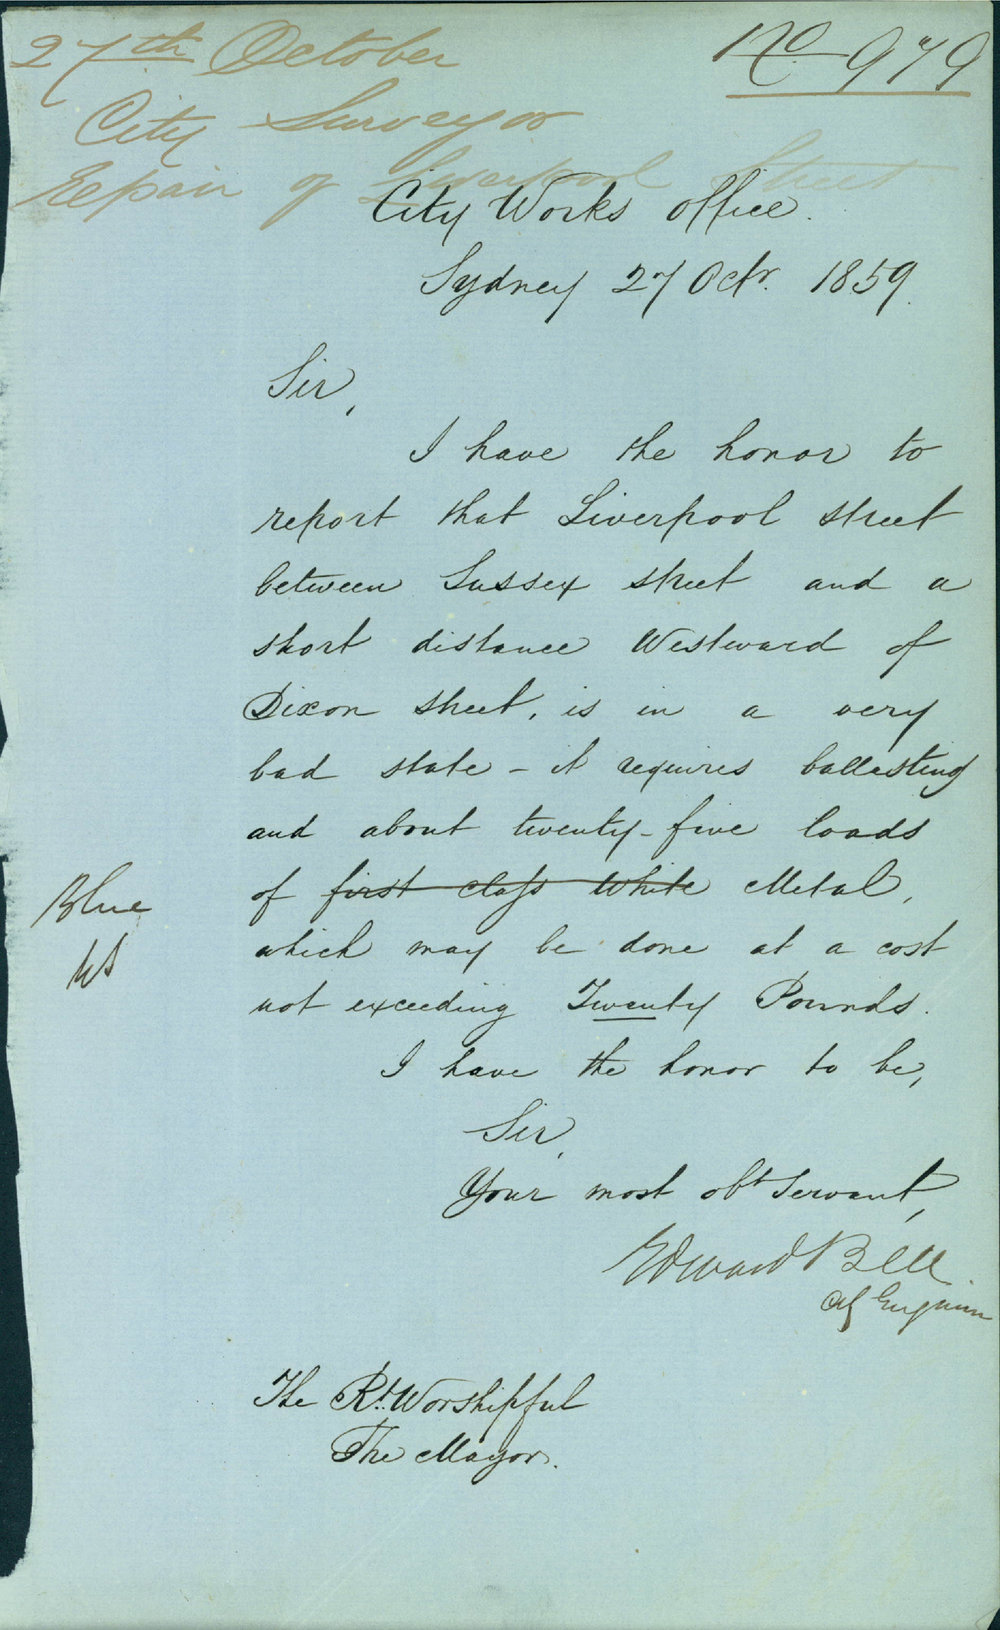 27th October
No 979
City Surveyor
Repair of Liverpool Street
City Works Office.
Sydney 27 Octr. 1859.
Sir,
I have the honor to
report that Liverpool street
between Sussex street and a
short distance Westward of
Dixon street, is in a very
bad state - it requires ballasting
and about twenty-five loads
of first class White Metal,
Blue
which may be done at a cost
not exceeding Twenty Pounds.
I have the honor to be,
Sir,
Your most obt Servant,
Edward Bell
City Engineer
The Rt. Worshipful
The Mayor.